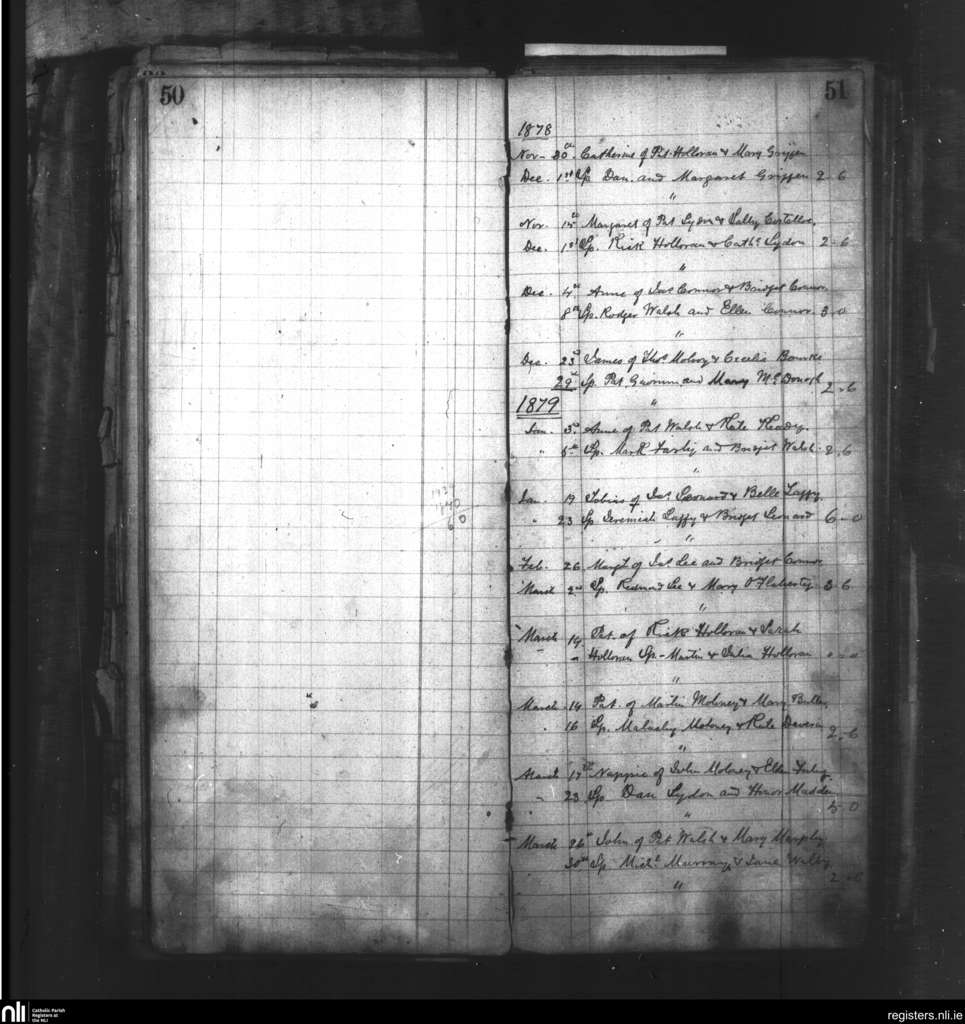 50
51
1878
Nov. 30th Catherine of Pat Holloran & Mary Griffen
Dec. 1st Sp. Dan. and Margaret Griffen 2-6
"
Nov. 15th Margaret of Pat Lydon & Sally Costelloe.
Dec. 1st Sp. Rick Holloran & Cathe Lydon 2-6
"
Dec. 4th Anne of Jas Connor & Bridget Connor
8th Sp. Rodger Walsh and Ellen Connor 3-0
"
Dec. 23d James of Thos Molroy & Cecelia Bourke
29th Sp. Pat and Mary McDonogh 2-6
1879 "
Jan. 3d Anne of Pat Walsh & Kate Keady.
" 5th Sp. Mark and Bridget Walsh. 2-6
"
Jan. 19 Tobias of Jas Leonard & Belle Laffy.
" 23 Sp Jeremiah Laffy & Bridget Leonard 6-0
"
Feb. 26 Margt of Jas Lee and Bridget Connor
March 2nd Sp. Redmond Lee & Mary O'Flaherty 2 6
"
March 14 Pat. of Rick Holloran & Sarah
" Holloran Sp- Martin & Julia Holloran
"
March 14 Pat. of Martin Moloney & Mary
16 Sp. Malachy Moloney & Kate 2-6
"
March 17th Nappie of John Moloney & Ellen
23 Sp Dan Lydon and Honor Madden
5 0
"
March 26th John of Pat Walsh & Mary Murphy
30th Sp Michl Murray & Jane
2-6
"
140
6 0
nli
Catholic Parish
Registers at
the NLI
registers.nli.ie